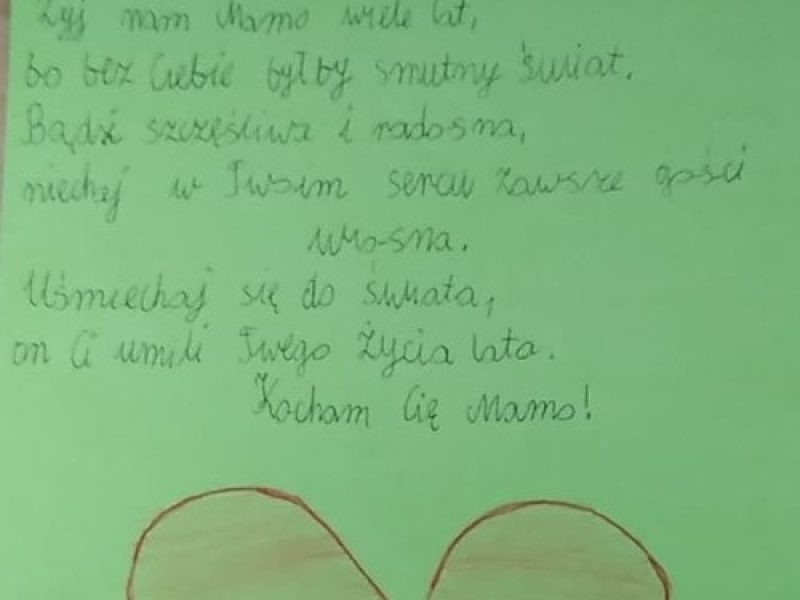 Żyj nam Mamo wiele lat,
bo bez Ciebie byłby smutny świat.
Bądź szczęśliwa i radosna,
niechaj w Twoim sercu zawsze gości
wiosna.
Uśmiechaj się do świata,
on Ci umili Twego życia lata.
Kocham Cię Mamo!